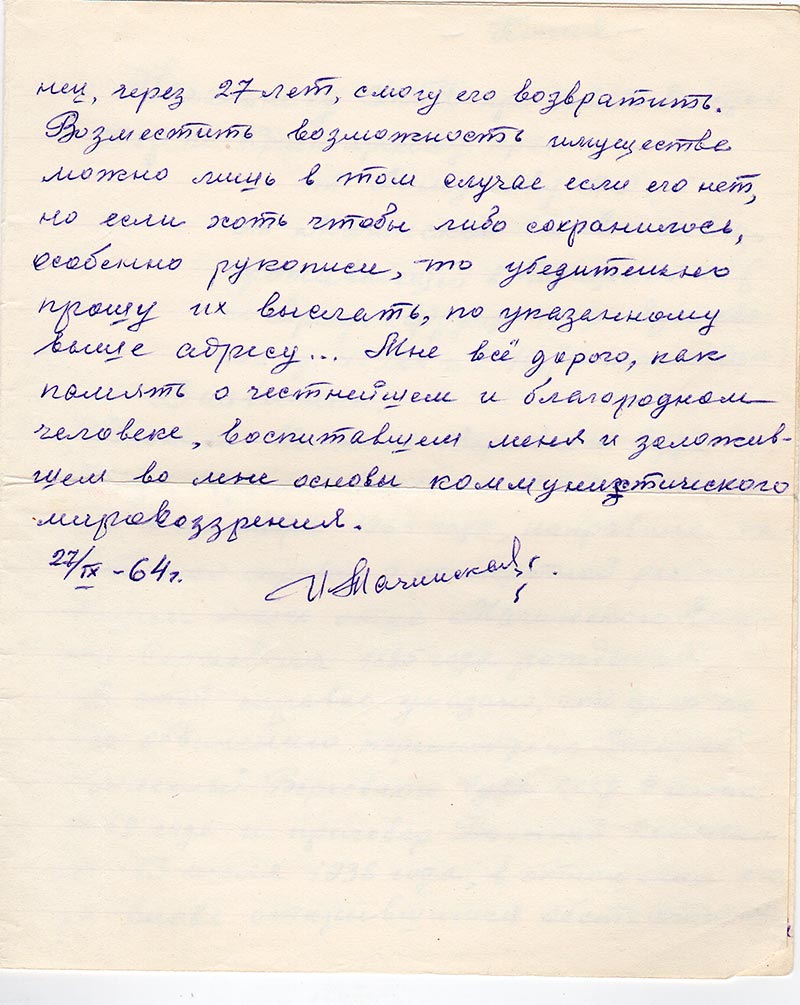 нец, через 27 лет, смогу его возвратить.
Возместить возможность имущества
можно лишь в том случае если его нет,
но если хоть чтобы либо сохранилось,
особенно рукописи, то убедительно
прошу их выслать, по указанному
выше адресу... Мне всё дорого, как
память о честнейшем и благородном
человеке, воспитавшем меня и заложив-
шем во мне основы коммунистического
мировоззрения.
27/IX -64г.
И Мачинская